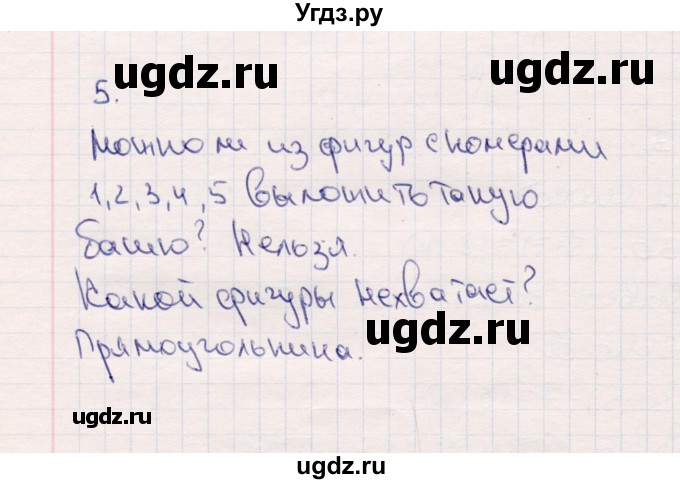 Угдз.ру
ugdz.ru ugdz.ru
5.
Можно ли из фигур с номерами
1, 2, 3, 4, 5 выложить такую
башню? Нельзя.
Какой фигуры нехватает?
Прямоугольника.
ugdz.ru
ugdz.ru
ugdz.ru